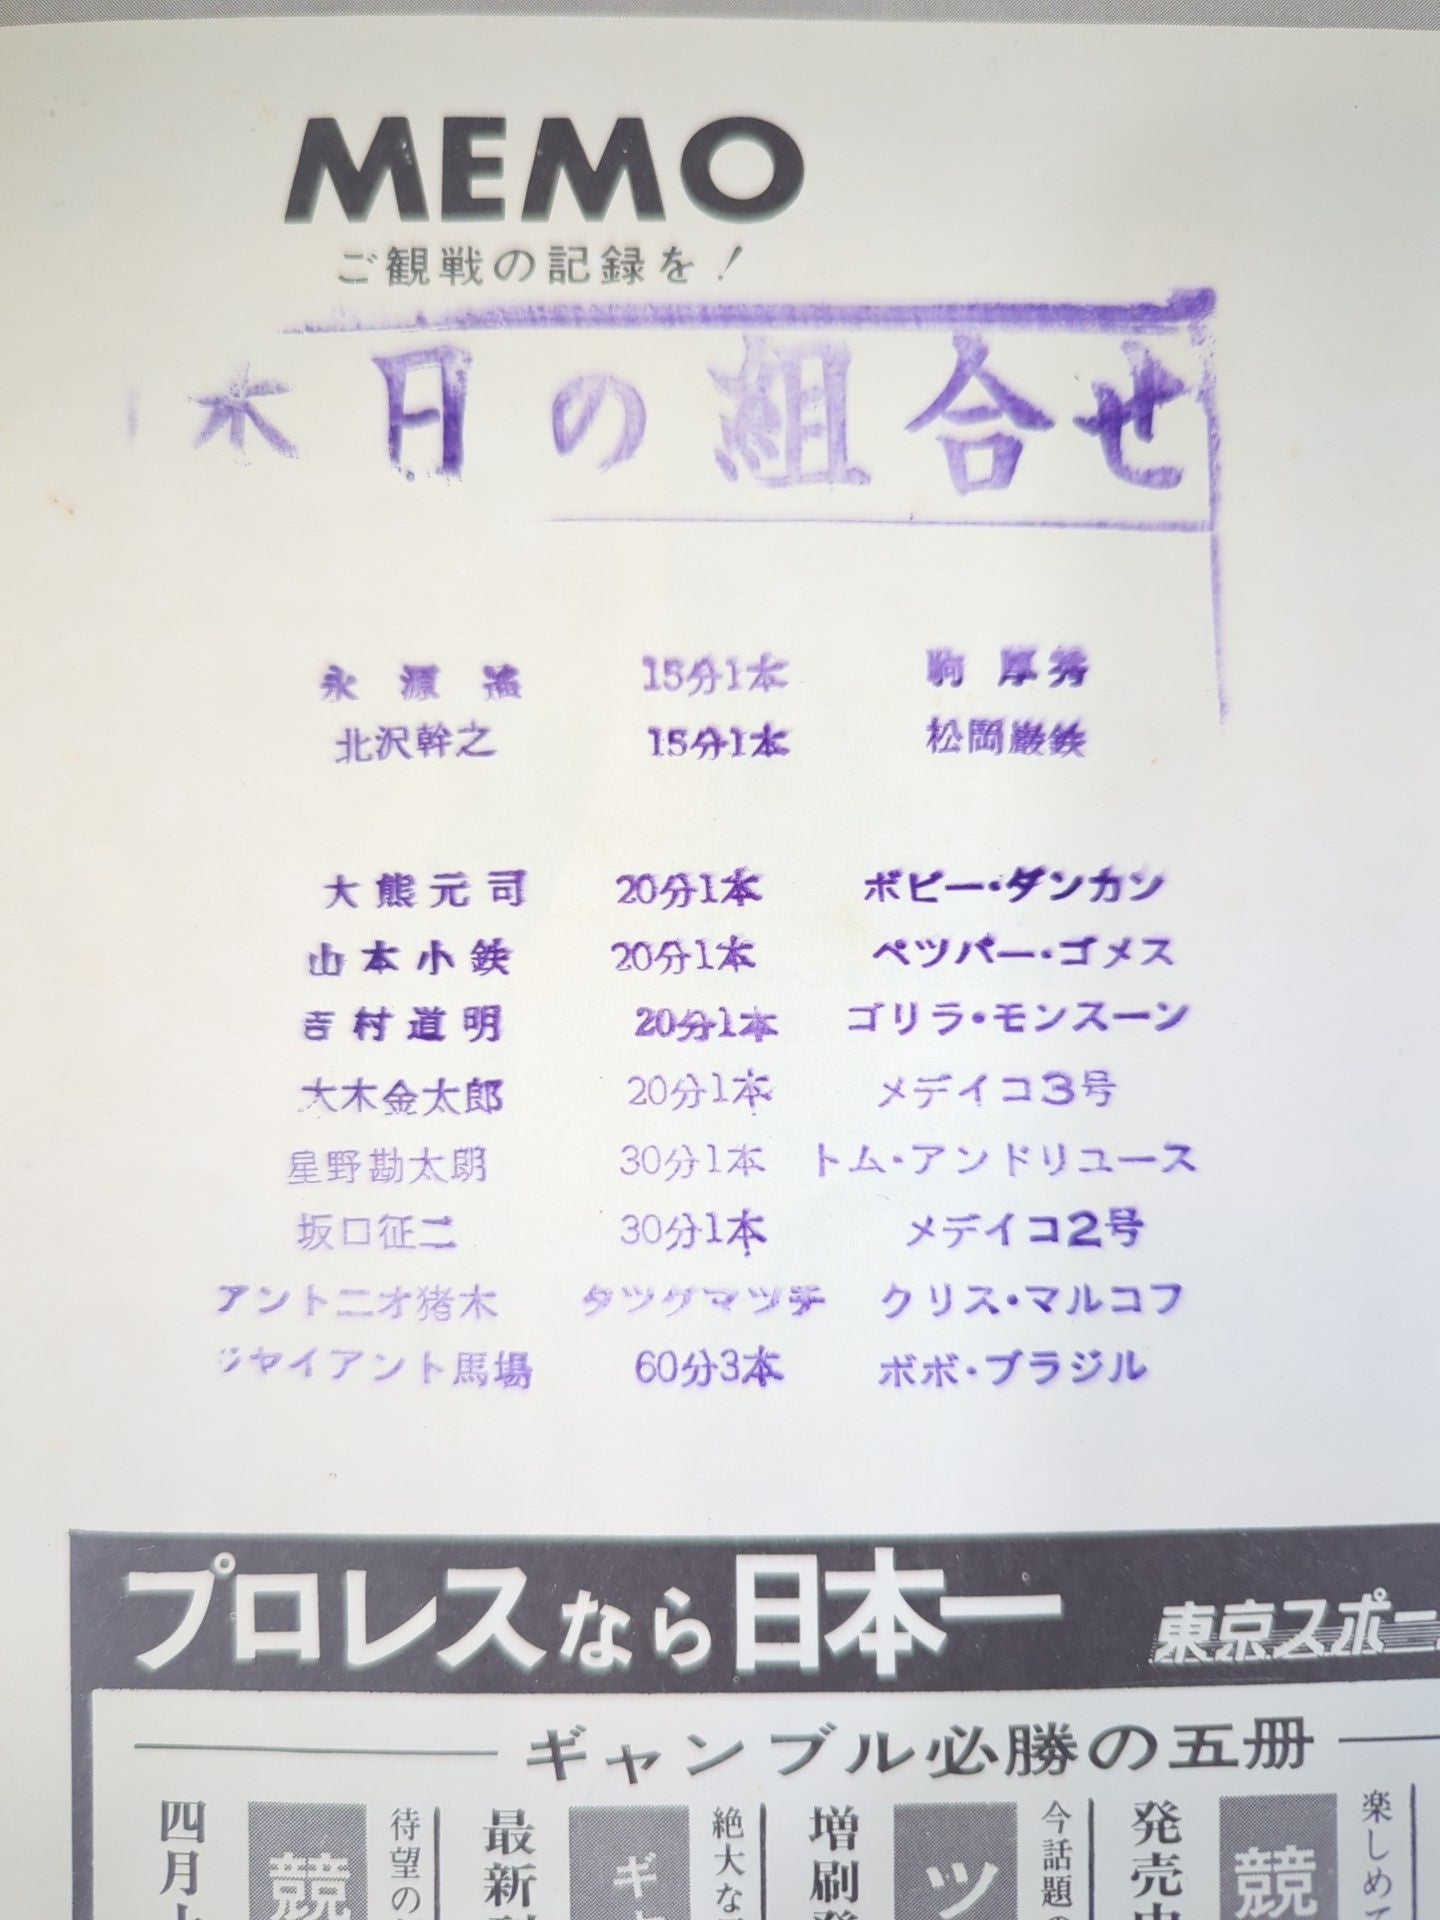 MEMO
ご観戦の記録を！
本日の組合せ
永源遙 15分1本 駒厚秀
北沢幹之 15分1本 松岡巌鉄
大熊元司 20分1本 ボビー・ダンカン
山本小鉄 20分1本 ペツパー・ゴメス
吉村道明 20分1本 ゴリラ・モンスーン
大木金太郎 20分1本 メデイコ3号
星野勘太朗 30分1本 トム・アンドリユース
坂口征二 30分1本 メデイコ2号
アントニオ猪木 タツグマツチ クリス・マルコフ
ジヤイアント馬場 60分3本 ボボ・ブラジル
プロレスなら日本一 東京スポー
ギャンブル必勝の五冊
楽しめて
競
発売中
今話題の
ツ
増刷発
絶大な
ギャ
最新
待望の
競
四月